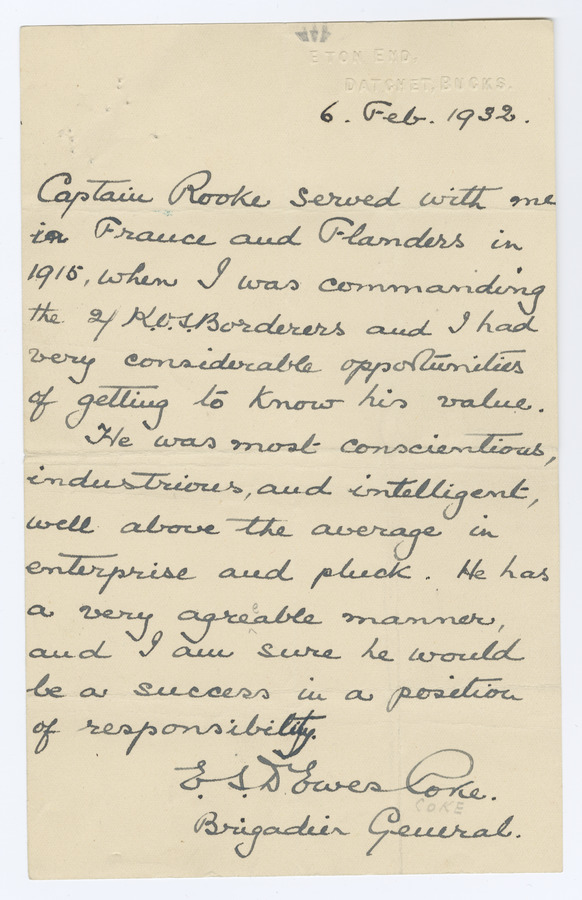 ETON END,
DATCHET, BUCKS.
6. Feb. 1932.
Captain Rooke served with me
in France and Flanders in
1915, when I was commanding
the 2/ K.O.S. Borderers and I had
very considerable opportunities
of getting to know his value.
He was most conscientious,
industrious, and intelligent,
well above the average in
enterprise and pluck. He has
a very agreeable manner,
and I am sure he would
be a success in a position
of responsibility.
E. S. D'Ewes Coke.
COKE
Brigadier General.